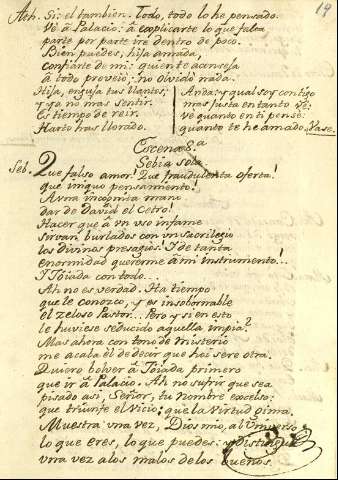 14
Ath. Si: el tambien. Todo, todo lo he pensado.
Ve â Palacio: â explicarte lo que falta
parte por parte ire dentro de poco.
Bien puedes, hija amada,
confiarte de mi: quien te aconseja
â todo proveiò; no olvidò nada.
Hija, enjuga tus llantos;
y yo no mas sentir.
Es tiempo de reir.
Harto has llorado.
Anda: y qual soy contigo
mas justa en tanto vè:
vè quanto en ti pensè:
quanto te hè amado. Vase.
Escena 8.ª
Sebia sola
Seb. Què falso amor! Què fraudulenta oferta!
què iniquo pensamiento!
A una inquinta mano
dar de David el Cetro!
Hacer que â un uso infame
sirvan burlados con un sacrilegio
los Divinos presagios! Y de tanta
enormidad quererme â mi instrumento...!
Y Joiada con todo...
Ah no es verdad. Ha tiempo
que le conozco, y es insobornable
el zeloso Pastor... Pero y si en esto
le huviese seducido aquella impia?
Mas ahora con tono de misterio
me acaba èl de decir que hoi serè otra.
Quiero bolver â Joiada primero
que ir â Palacio. Ah no sufrir que sea
pisado asi, Señor, tu nombre excelso:
que triunfe el Vicio: que la Virtud gima.
Muestra una vez, Dios mio, al Universo
lo que eres, lo que puedes: y distingue
una vez a los malos de los buenos.